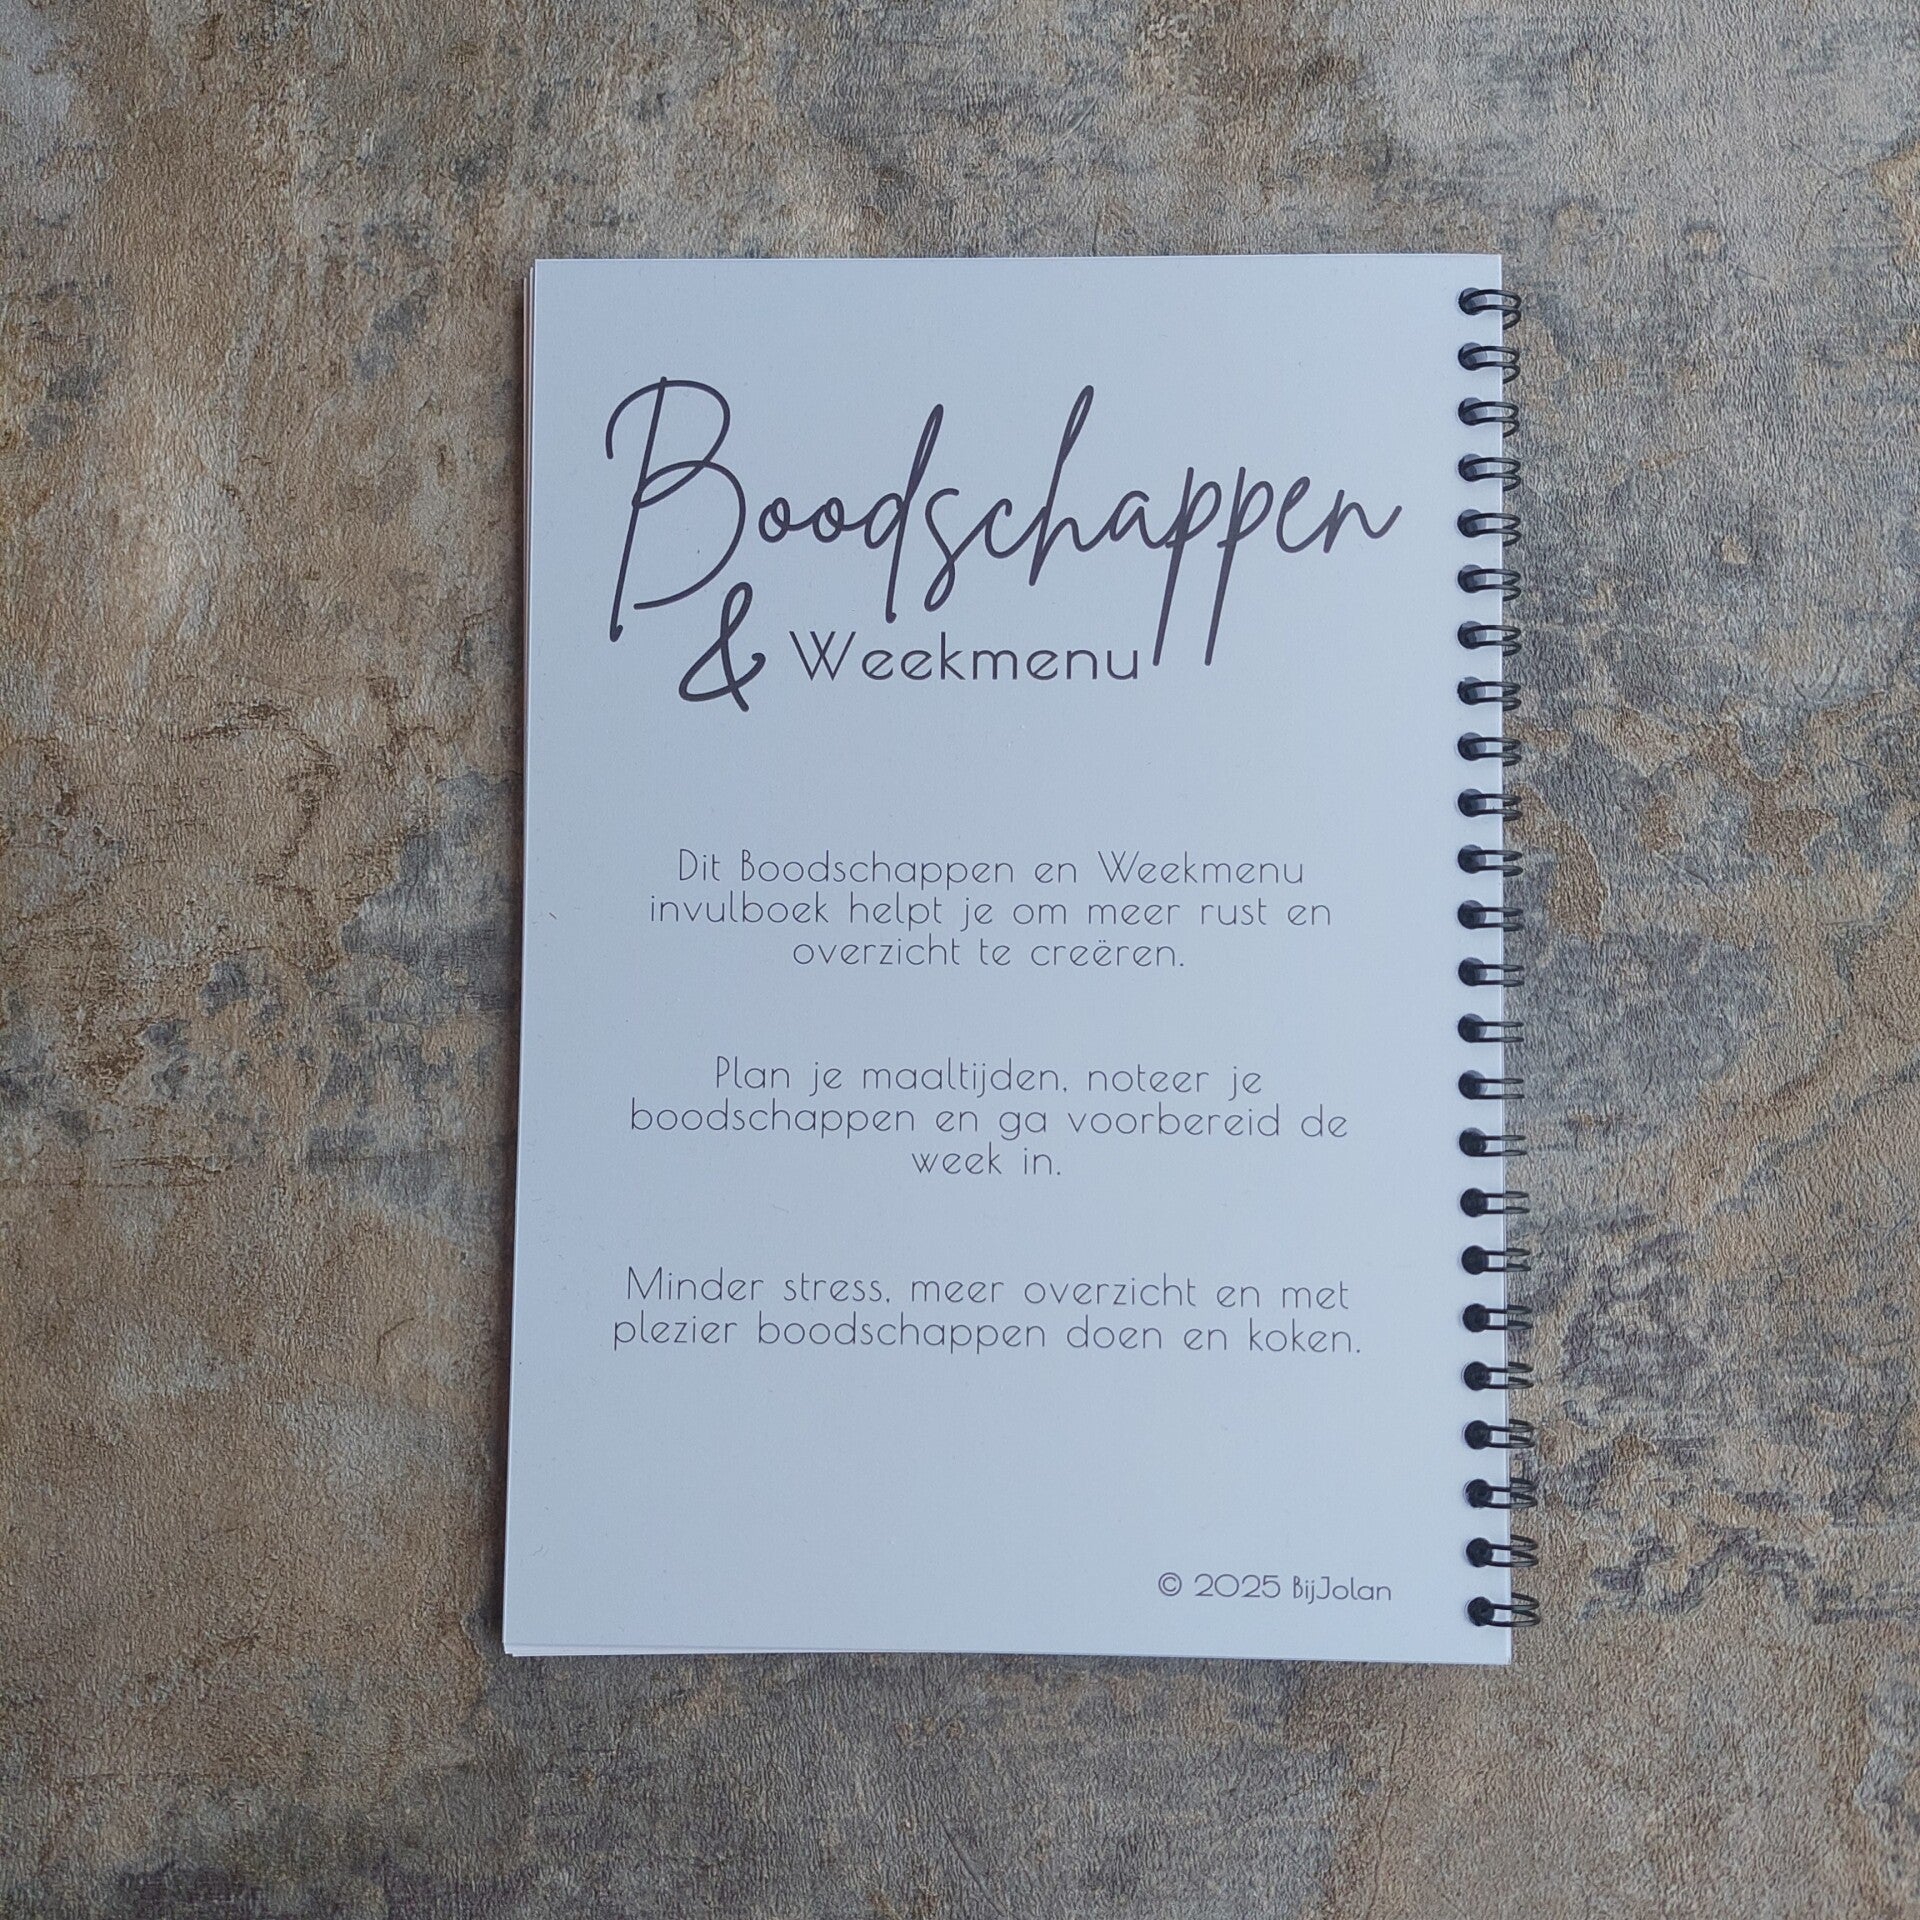 Boodschappen
& Weekmenu
Dit Boodschappen en Weekmenu
invulboek helpt je om meer rust en
overzicht te creëren.
Plan je maaltijden, noteer je
boodschappen en ga voorbereid de
week in.
Minder stress, meer overzicht en met
plezier boodschappen doen en koken.
© 2025 BijJolan